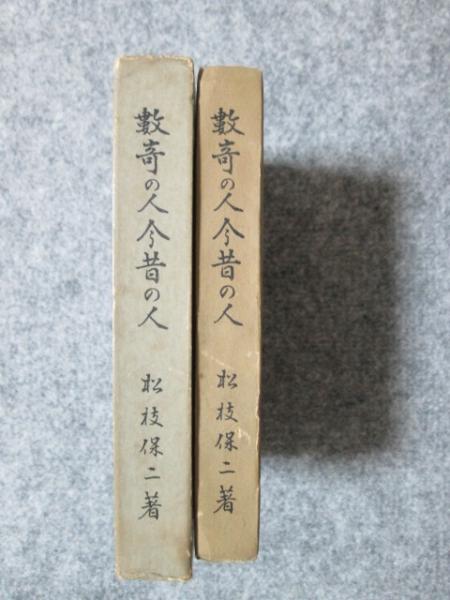 數奇の人今昔の人
松枝保二著
數奇の人今昔の人
松枝保二著